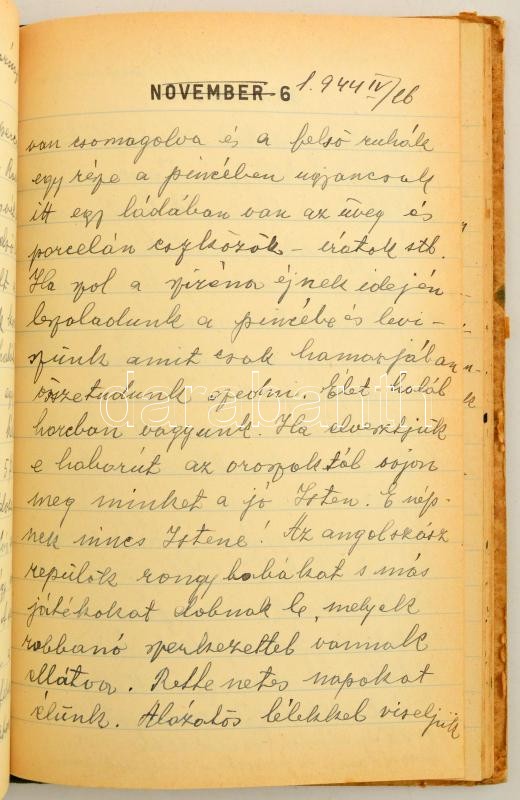 NOVEMBER 6 1.944 IV/26
van csomagolva és a felső ruhák
egy része a pincében ugyancsak
itt egy ládában van az üveg és
porcelán eszközök – iratok stb.
Ha szol a sziréna éjnek idején
leszaladunk a pincébe és levi-
szünk amit csak hamarjában
össze tudunk szedni. Élet halál
harcban vagyunk. Ha elvesztjük
e háborút az oroszoktól óvjon
meg minket a jó Isten. E nép-
nek nincs Istene! Az angolszász
repülők rongybabákat s más
játékokat dobnak le, melyek
robbanó szerkezettel vannak
ellátva. Rettenetes napokat
élünk. Alázatos lélekkel viseljük
darabanth